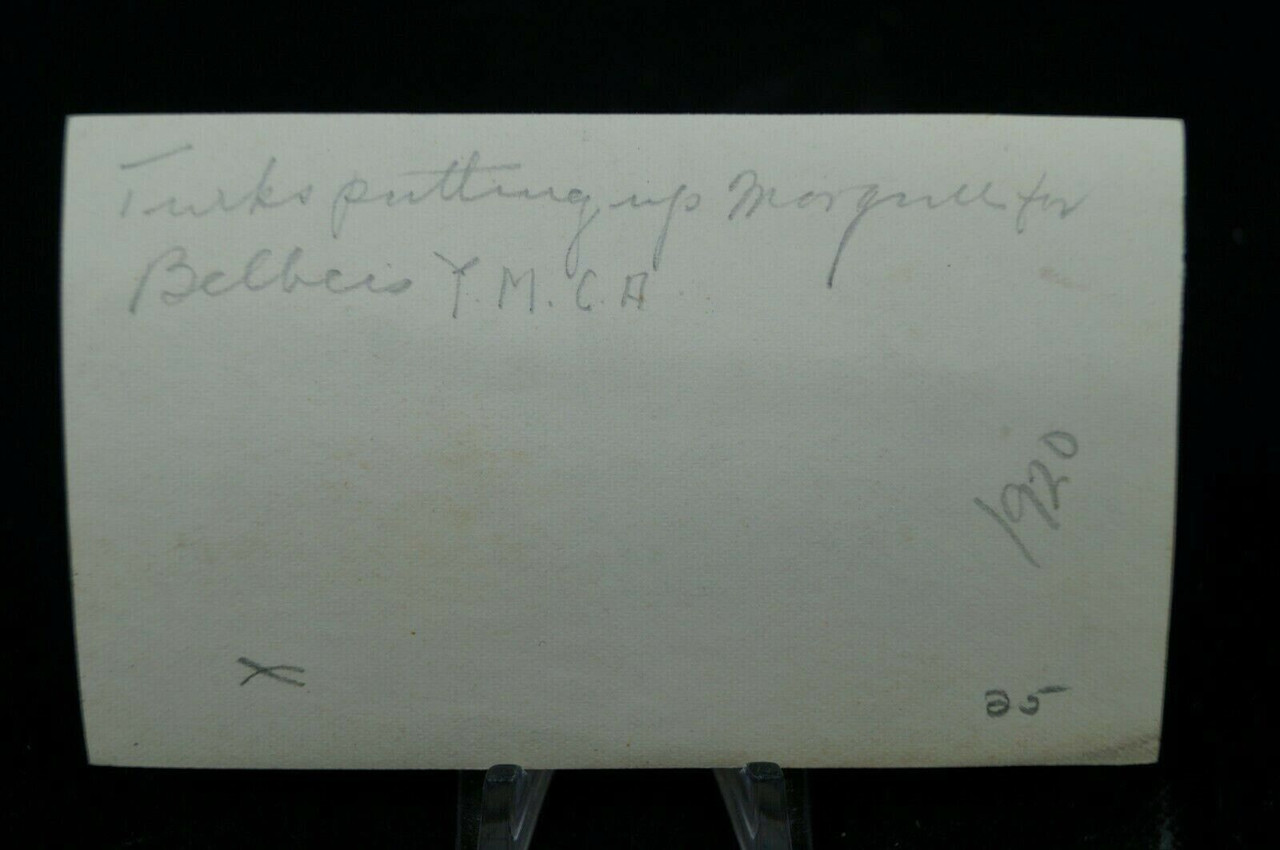 Turks putting up Marquee for
Belbeis Y.M.C.A.
1920
X
25